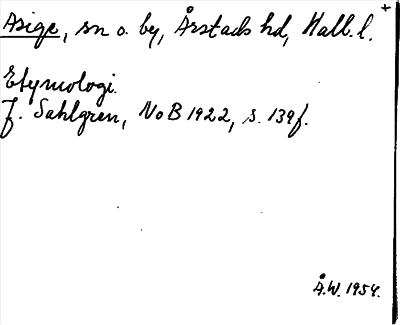 Asige, sn o. by, Årstads hd, Hall. l. +
Etymologi.
J. Sahlgren, NoB 1922, s. 139f.
Å.W. 1954.